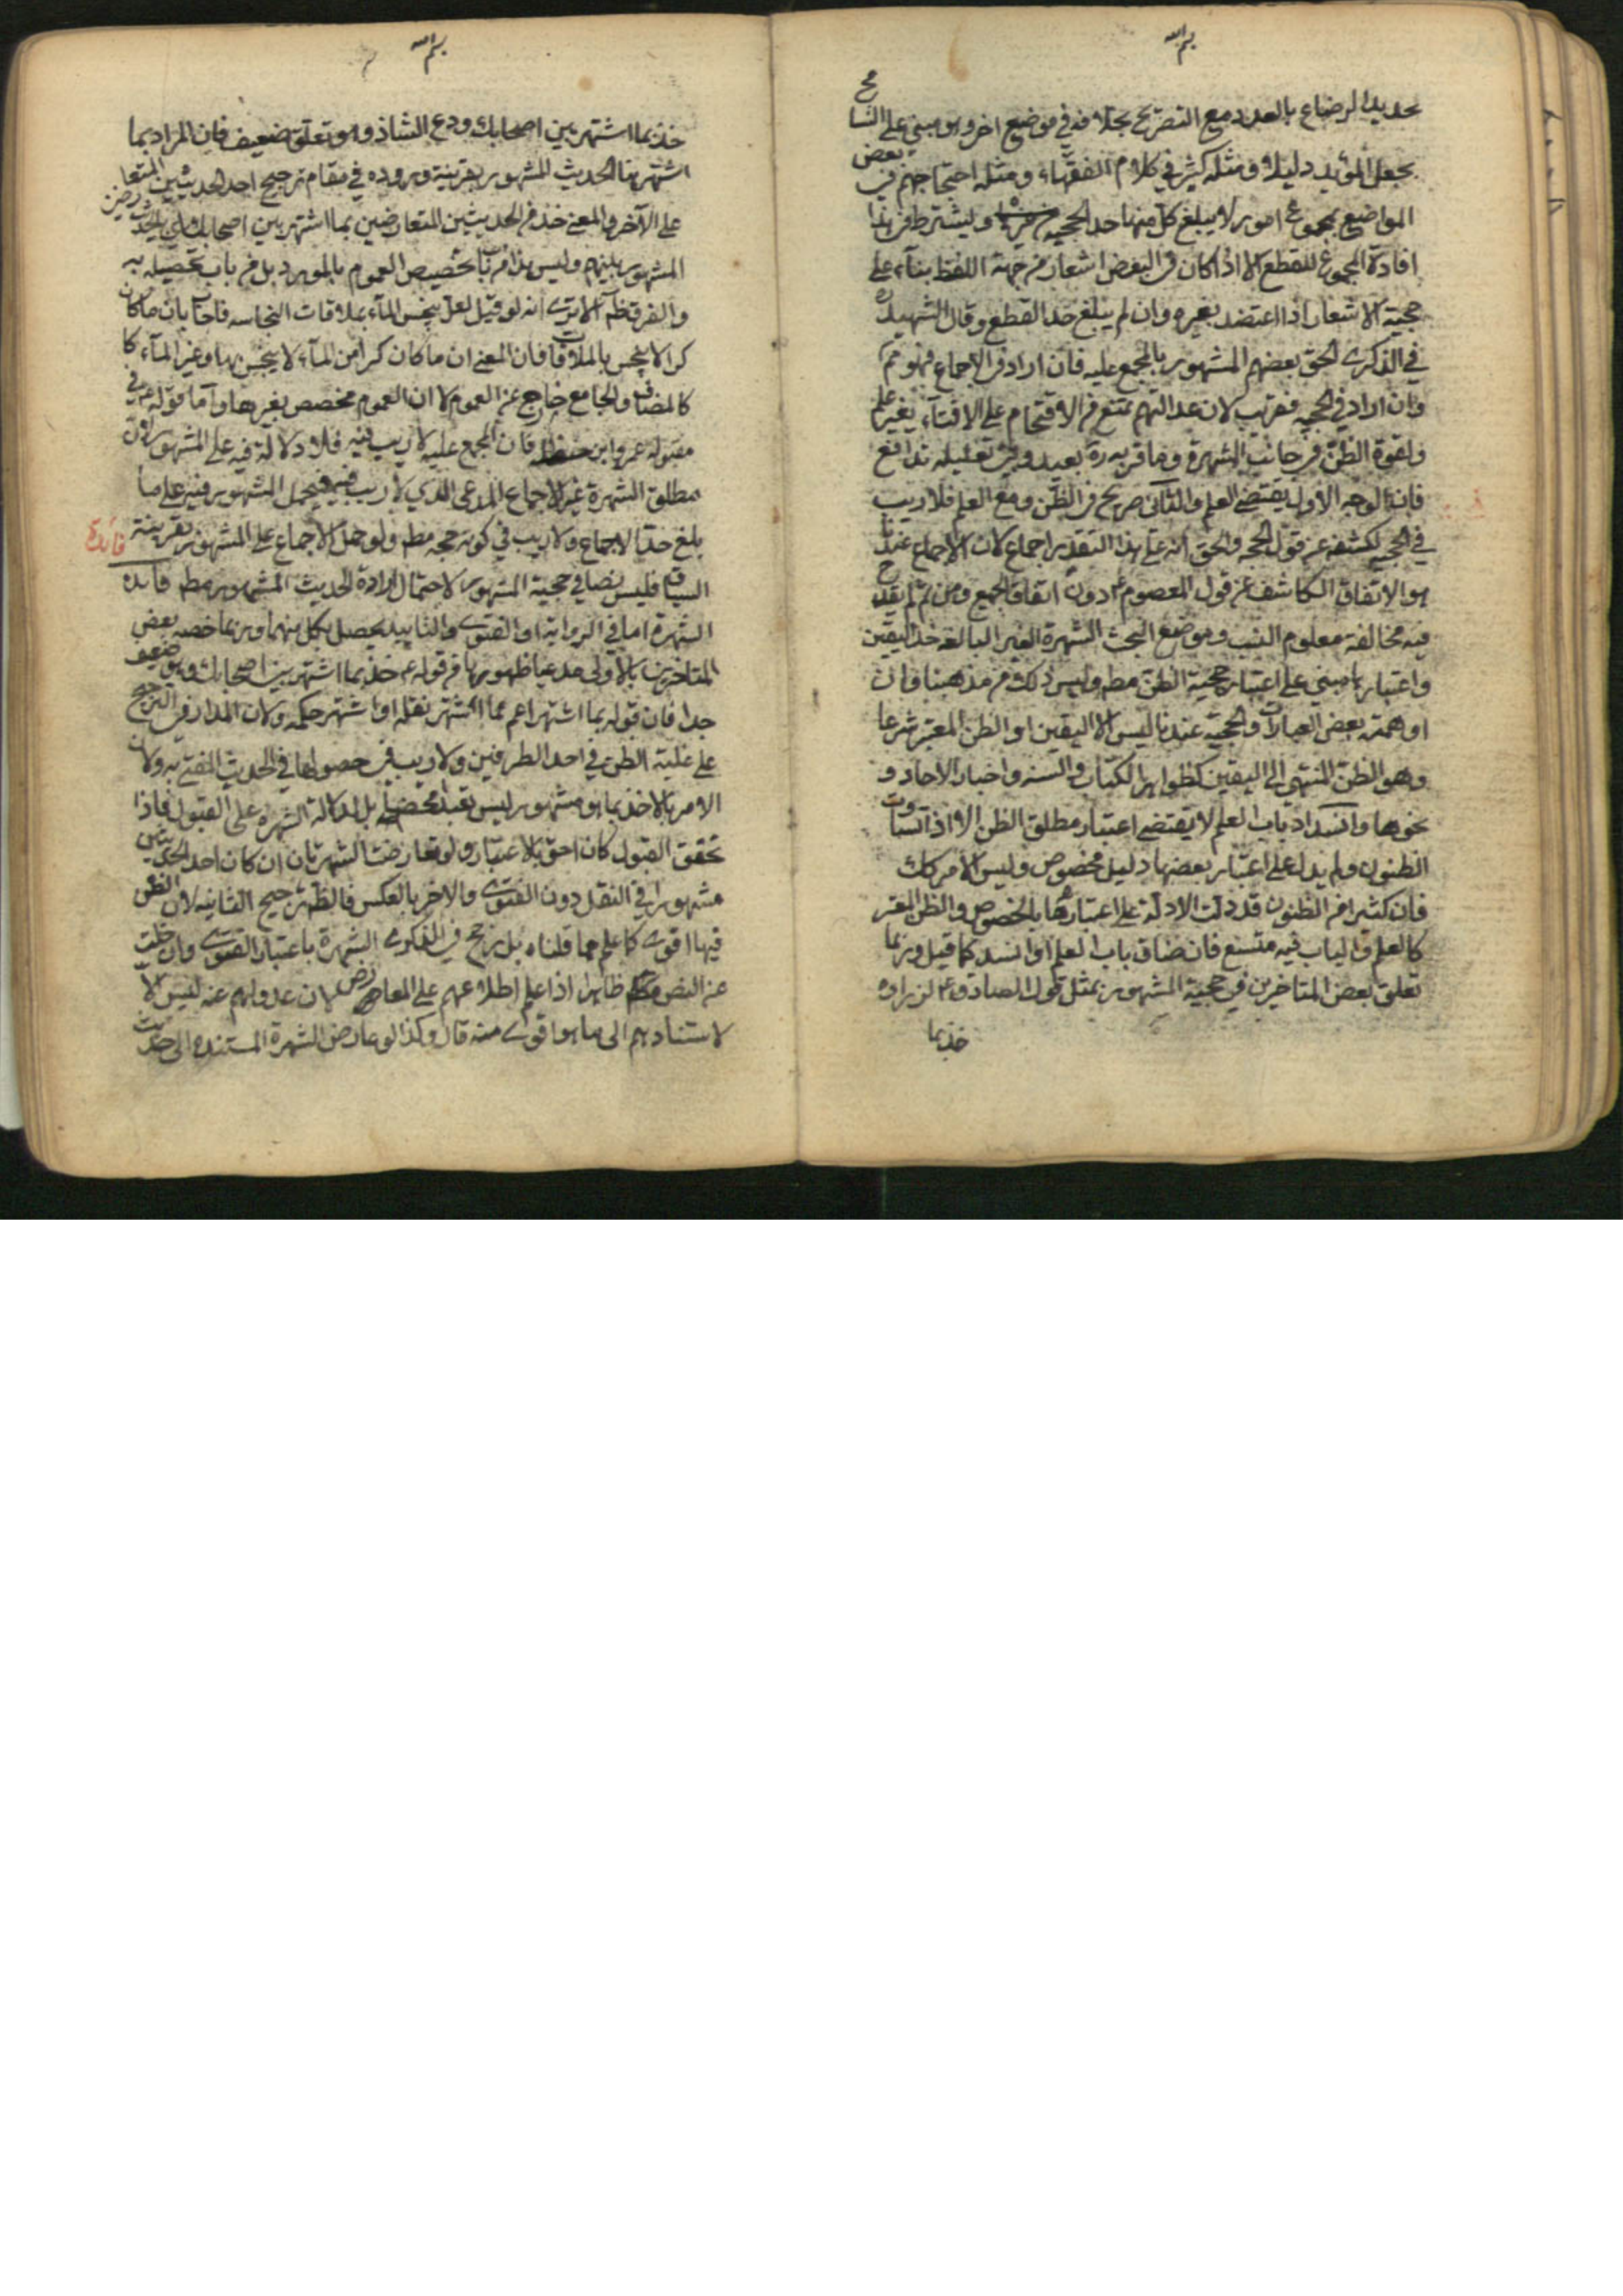 بسم الله
تحديد الرضاع بالعدد مع التصريح بخلافه في موضع اخر وهو مبني على التسامح
بجعل المؤيد دليلا ومثله كثير في كلام الفقهاء ومثله احتجاجهم في بعض
المواضع بمجموع امور لا يبلغ كل منها حد الحجية ويشترط في هذا
افادة المجموع للقطع الا اذا كان في البعض اشعار من جهة اللفظ بناء على
حجية الاشعار اذا اعتضد بغيره وان لم يبلغ حد القطع وقال الشهيد ره
في الذكرى الحق بعضهم المشهور بالمجمع عليه فان اراد في الاجماع فهو مم
وان اراد في الحجية فقريب لان عدالتهم تمنع من الاقتحام على الافتاء بغير علم
ولقوة الظن في جانب الشهرة وما قربه ره بعيد وفي تعليله تدافع
فان الوجه الاول يقتضي العلم والثاني صريح في الظن ومع العلم فلا ريب
في الحجية لكشفه عن قول الحجة والحق انه على هذا التقدير اجماع لان الاجماع عندنا
هو الاتفاق الكاشف عن قول المعصوم ع دون اتفاق الجميع ومن ثم لم يقدح
فيه مخالفة معلوم النسب وموضع البحث الشهرة الغير البالغة حد اليقين
واعتبارها مبني على اعتبار حجية الظن مطر وليس ذلك من مذهبنا وان
اوهمته بعض العبارات والحجية عندنا ليس الا اليقين او الظن المعتبر شرعا
وهو الظن المنتهي الى اليقين كظواهر الكتاب والسنه واخبار الاحاد و
نحوها وانسداد باب العلم لا يقتضي اعتبار مطلق الظن الا اذا تساوت
الظنون ولم يدل على اعتبار بعضها دليل مخصوص وليس الامر كك
فان كثيرا من الظنون قد دلت الادلة على اعتبارها بالخصوص والظن المعتبر
كالعلم والباب فيه متسع فان ضاق باب العلم او انسد كما قيل وربما
تعلق بعض المتاخرين في حجية المشهور بمثل قول الصادق ع لزراره
خذ بما
بسم الله
خذ بما اشتهر بين اصحابك ودع الشاذ وهو تعلق ضعيف فان المراد بما
اشتهر هنا الحديث المشهور بقرينة وروده في مقام ترجيح احد الحديثين المتعارضين
على الآخر والمعنى خذ من الحديثين المتعارضين بما اشتهر بين اصحابك اي بالحديث
المشهور بينهم وليس هذا من باب تخصيص العموم بالمورد بل من باب تحصيله به
والفرق ظ الا ترى انه لو قيل لعل ينجس الماء بملاقات النجاسه فاجاب بان ما كان
كرا لا ينجس بالملاقات فان المعنى ان ما كان كرا من الماء لا ينجس بها وغير الماء كا
كالمضاف والجامع خارج عن العموم لا ان العموم مخصص بغيرها واما قوله ع في
مقبولة عمر وابن حنظله فان المجمع عليه لا ريب فيه فلا دلالة فيه على المشهور لان
مطلق الشهرة غير الاجماع المدعى الذي لا ريب فيه فيحمل المشهور فيه على ما
بلغ حد الاجماع ولا ريب في كونه حجه مطر ولو حمل الاجماع على المشهور بقرينة
السياق فليس نصا في حجية المشهور لاحتمال ارادة الحديث المشهور مطر فائده
فائدة
الشهرة اما في الرواية او الفتوى والتاييد يحصل بكل منهما وربما خصه بعض
المتاخرين بالاولى مدعيا ظهورها من قوله ع خذ بما اشتهر بين اصحابك وهو ضعيف
جدا فان قوله بما اشتهر اعم مما اشتهر نقله او اشتهر حكمه ولان المدار في الترجيح
على غلبة الظن في احد الطرفين ولا ريب في حصولها في الحديث المفتى به ولان
الامر بالاخذ بما هو مشهور ليس تعبدا محضا بل لدلالة الشهرة على القبول فاذا
تحقق القبول كان احق بالاعتبار ولو تعارضت الشهرتان ان كان احد الحديثين
مشهورا في النقل دون الفتوى والاخر بالعكس فالظهر ترجيح الثانيه لان الظن
فيها اقوى كما علم مما قلناه بل رجح في الذكرى الشهرة باعتبار الفتوى وان خلت
عن النص ظاهرا اذا علم اطلاعهم على المعارض لان عدولهم عنه ليس الا
لاستنادهم الى ما هو اقوى منه قال وكذا لو عارض الشهرة المستنده الى حديث